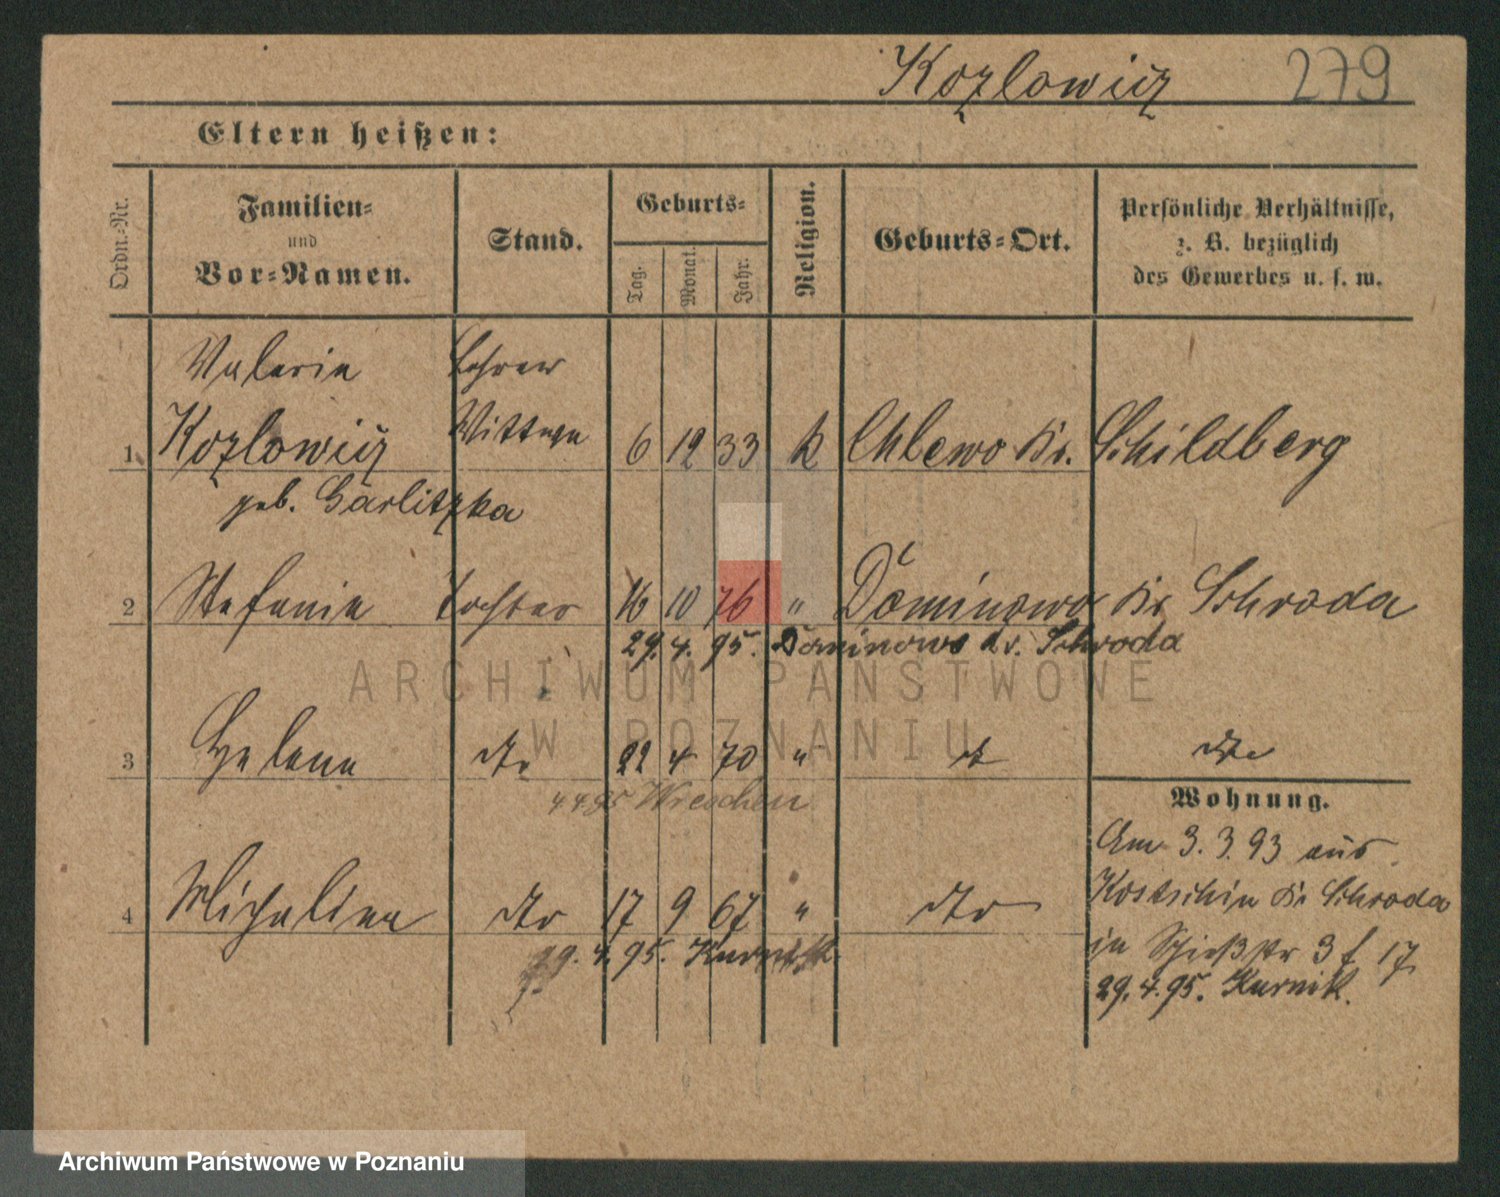 Kozlowicz 279
Eltern heißen:
Ordn.-Nr.
Familien-
und
Vor-Namen.
Stand.
Geburts-
Tag.
Monat.
Jahr.
Religion.
Geburts-Ort.
Persönliche Verhältnisse,
z. B. bezüglich
des Gewerbes u. s. w.
Valeria Lehrer
1 Kozlowicz Wittwe 6 12 33 k Chlewo Kr. Schildberg
geb. Garlitzka
2 Stefania Tochter 16 10 76 " Dominowo Kr Schroda
29. 4. 95. Dominowo Kr. Schroda
3 Helena dto 22 4 70 " dto
4 4 95 Wreschen
Wohnung.
Am 3. 3. 93 aus
Kostschin Kr Schroda
4 Michalina dto 17 9 67 " dto
in Schießstr 3 f 17
29. 4. 95. Kurnik
29. 4. 95. Kurnik.
ARCHIWUM PAŃSTWOWE
W POZNANIU
Archiwum Państwowe w Poznaniu